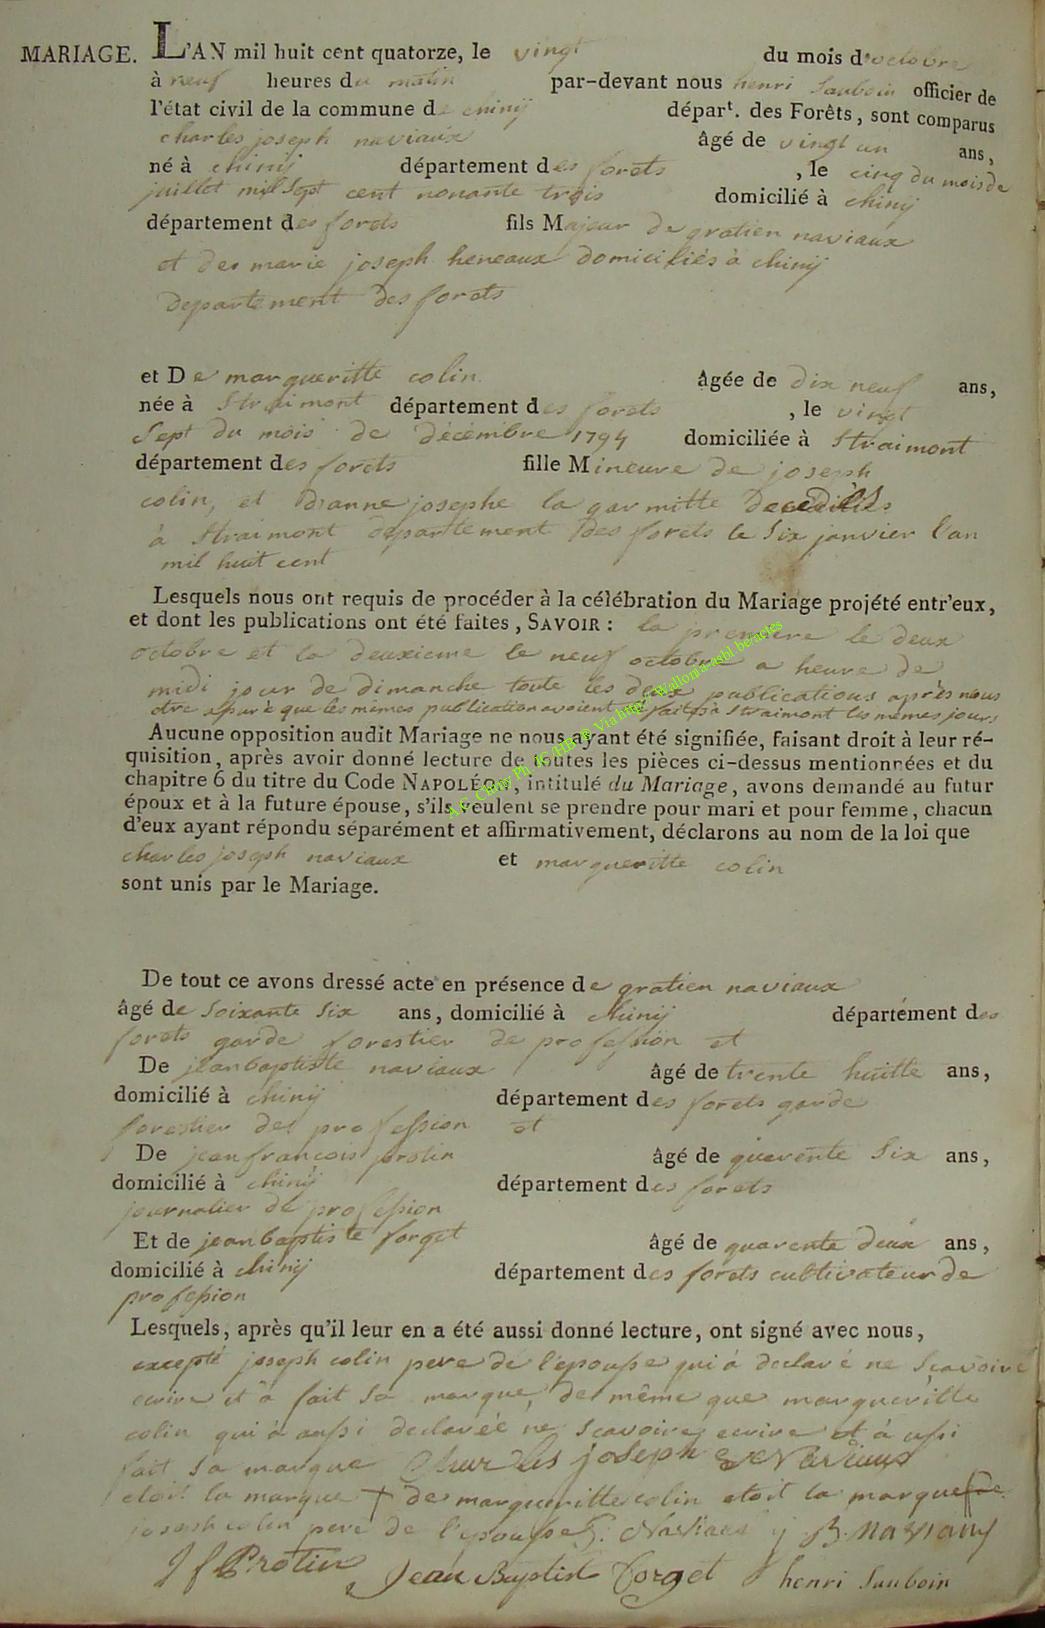 MARIAGE. L'AN mil huit cent quatorze, le vingt du mois d'octobre
à neuf heures du matin par-devant nous henri Sauboin officier de
l'état civil de la commune de chinij départ. des Forêts, sont comparus
charles joseph naviaux âgé de vingt un ans,
né à chinij département des forets , le cinq du mois de
juillet mil Sept cent nonante trois domicilié à chinij
département des forets fils Majeur de gratien naviaux
et des marie joseph heneaux domiciliés à chinij
departement des forets
et De margueritte colin âgée de dix neuf ans,
née à Straimont département des forets , le vingt
Sept du mois de décémbre 1794 domiciliée à Straimont
département des forets fille Mineure de joseph
colin, et danne josephe la garmitte Decedés
à Straimont departement des forets le Six janvier l'an
mil huit cent
Lesquels nous ont requis de procéder à la célébration du Mariage projété entr'eux,
et dont les publications ont été faites, SAVOIR : la premiere le deux
octobre et la deuxieme le neuf octobre a heure de
midi jour de dimanche toute les deux publications après nous
être que les mêmes publication avoient été fait à Straimont les mêmes jours
Aucune opposition audit Mariage ne nous ayant été signifiée, faisant droit à leur ré-
quisition, après avoir donné lecture de toutes les pièces ci-dessus mentionnées et du
chapitre 6 du titre du Code NAPOLÉON, intitulé du Mariage, avons demandé au futur
époux et à la future épouse, s'ils veulent se prendre pour mari et pour femme, chacun
d'eux ayant répondu séparément et affirmativement, déclarons au nom de la loi que
charles joseph naviaux et margueritte colin
sont unis par le Mariage.
De tout ce avons dressé acte en présence de gratien naviaux
âgé de Soixante Six ans, domicilié à chinij département des
forets garde forestier de profession et
De jean baptiste naviaux âgé de trente huitte ans,
domicilié à chinij département des forets garde
forestier de profession et
De jean francois protin âgé de quarente Six ans,
domicilié à chinij département des forets
journalier de profession
Et de jean baptiste forget âgé de quarente deux ans,
domicilié à chinij département des forets cultivateur de
profession
Lesquels, après qu'il leur en a été aussi donné lecture, ont signé avec nous,
excepté joseph colin pere de l'epouse qui à declaré ne Scavoire
ecrire et à fait Sa marque, de même que margueritte
colin qui à aussi declarée ne Scavoire ecrire et à ussi
fait Sa marque Charles joseph Naviaux
etoit la marque + de margueritte colin etoit la marque de
joseph colin pere de l'epouse G. Naviaux j B naviaux
J f Protin Jean Baptist Forget henri Sauboin
A.G. Chiny Ph. JC/HB © Via http:// Wallonia-asbl.be/actes